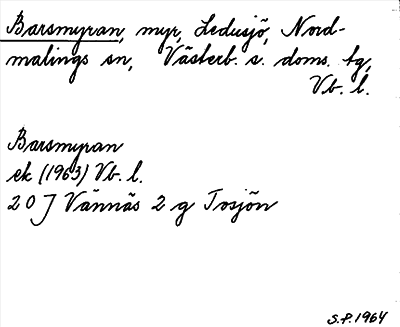 Barsmyran, myr, Ledusjö, Nord-
malings sn, Västerb. s. doms. tg,
Vb. l.
Barsmyran
ek (1963) Vb. l.
20 J Vännäs 2 g Tosjön
S.P. 1964